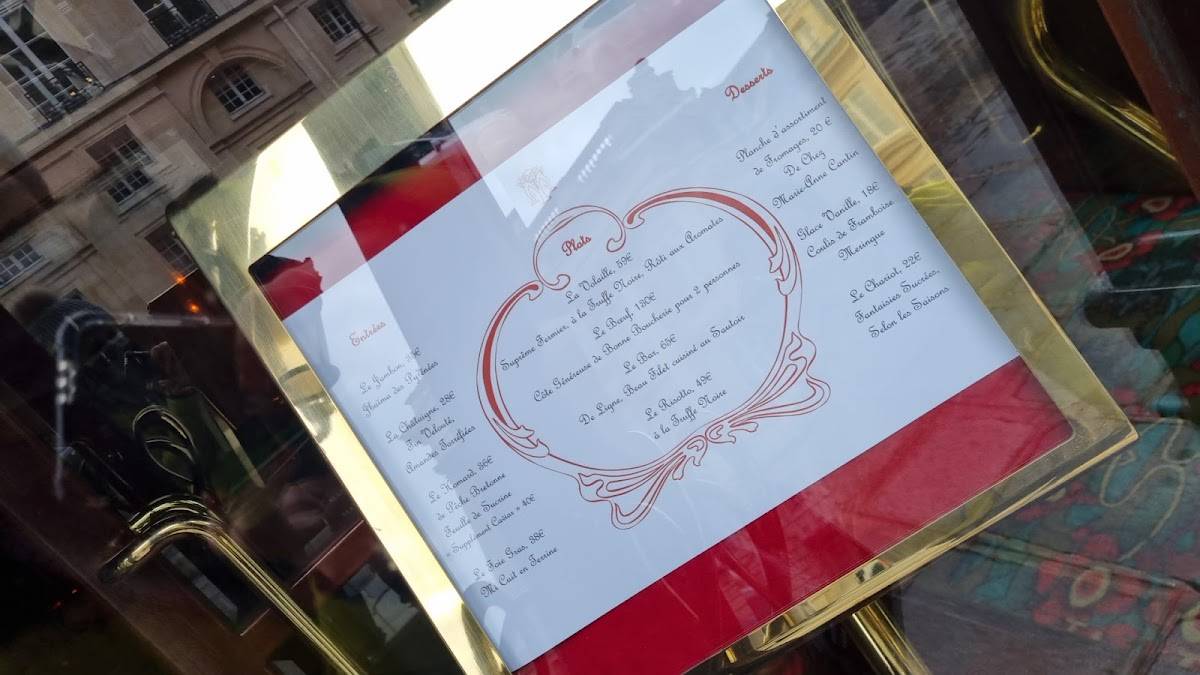 Entrées
Le Jambon,
des Pyrénées
La Châtaigne, 28€
Fin Velouté,
Amandes Torréfiées
Le Homard, 36€
de Pêche Bretonne
Feuille de Sucrine
« Supplément Caviar + 40€
Le Foie Gras, 38€
Mi Cuit en Terrine
Plats
La Volaille, 59€
Suprême Fermier, à la Truffe Noire, Rôti aux Aromates
Le Bœuf, 130€
Côte Généreuse de Bonne Boucherie pour 2 personnes
Le Bar, 65€
De Ligne, Beau Filet cuisiné au Sautoir
Le Risotto, 49€
à la Truffe Noire
Desserts
Planche d'assortiment
de Fromages, 20 €
De Chez
Marie-Anne Cantin
Glace Vanille, 18€
Coulis de Framboise
Meringue
Le Chariot, 22€
Fantaisies Sucrées,
Selon les Saisons